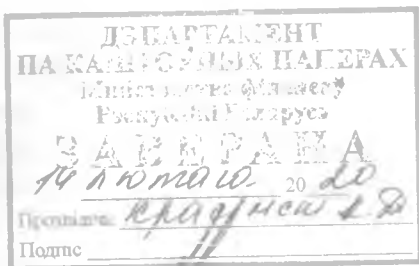 ДЭПАРТАМЕНТ
ПА КАШТОЎНЫХ ПАПЕРАХ
Міністэрства фінансаў
Рэспублікі Беларусь
ЗАВЕРАНА
14 лютага 20 20
Подпіс